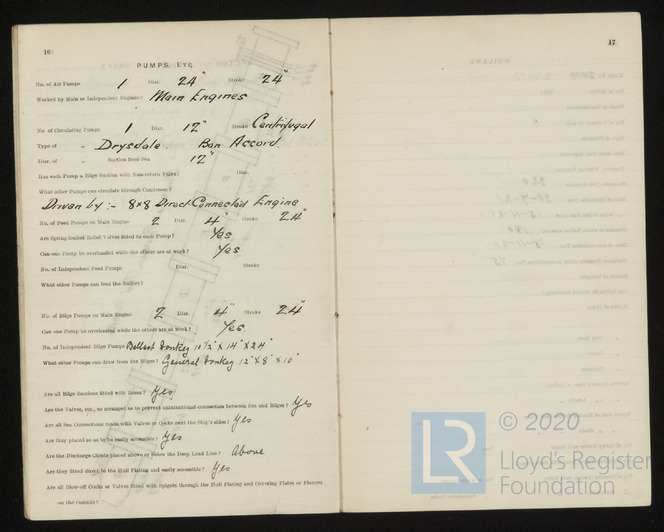 16
PUMPS, ETC
No. of Air Pumps 1 Diar. 24" Stroke 24"
Worked by Main or Independent Engines? Main Engines
No. of Circulating Pumps 1 Diar. 12" Stroke Centrifugal
Type of " Drysdale Bon Accord
Diar. of " Suction from Sea 12"
Has each Pump a Bilge Suction with Non-return Valve? Diar.
What other Pumps can circulate through Condenser?
Driven by :- 8x8 Direct Connected Engine
No. of Feed Pumps on Main Engine 2 Diar. 4" Stroke 24"
Are Spring-loaded Relief Valves fitted to each Pump? Yes
Can one Pump be overhauled while the others are at work? Yes
No. of Independent Feed Pumps Diar. Stroke
What other Pumps can feed the Boilers?
No. of Bilge Pumps on Main Engine 2 Diar. 4" Stroke 24"
Can one Pump be overhauled while the others are at work? Yes
No. of Independent Bilge Pumps Ballast Donkey 10 1/2" X 14" X 24"
What other Pumps can draw from the Bilges? General Donkey 12" X 8" X 10"
Are all Bilge Suctions fitted with Roses? Yes
Are the Valves, etc., so arranged as to prevent unintentional connection between Sea and Bilges? Yes
Are all Sea Connections made with Valves or Cocks next the Ship's sides? Yes
Are they placed so as to be easily accessible? Yes
Are the Discharge Chests placed above or below the Deep Load Line? Above
Are they fitted direct to the Hull Plating and easily accessible? Yes
Are all Blow-off Cocks or Valves fitted with spigots through the Hull Plating and Covering Plates or Flanges
on the Outside?
17
LR
© 2020
Lloyd's Register
Foundation